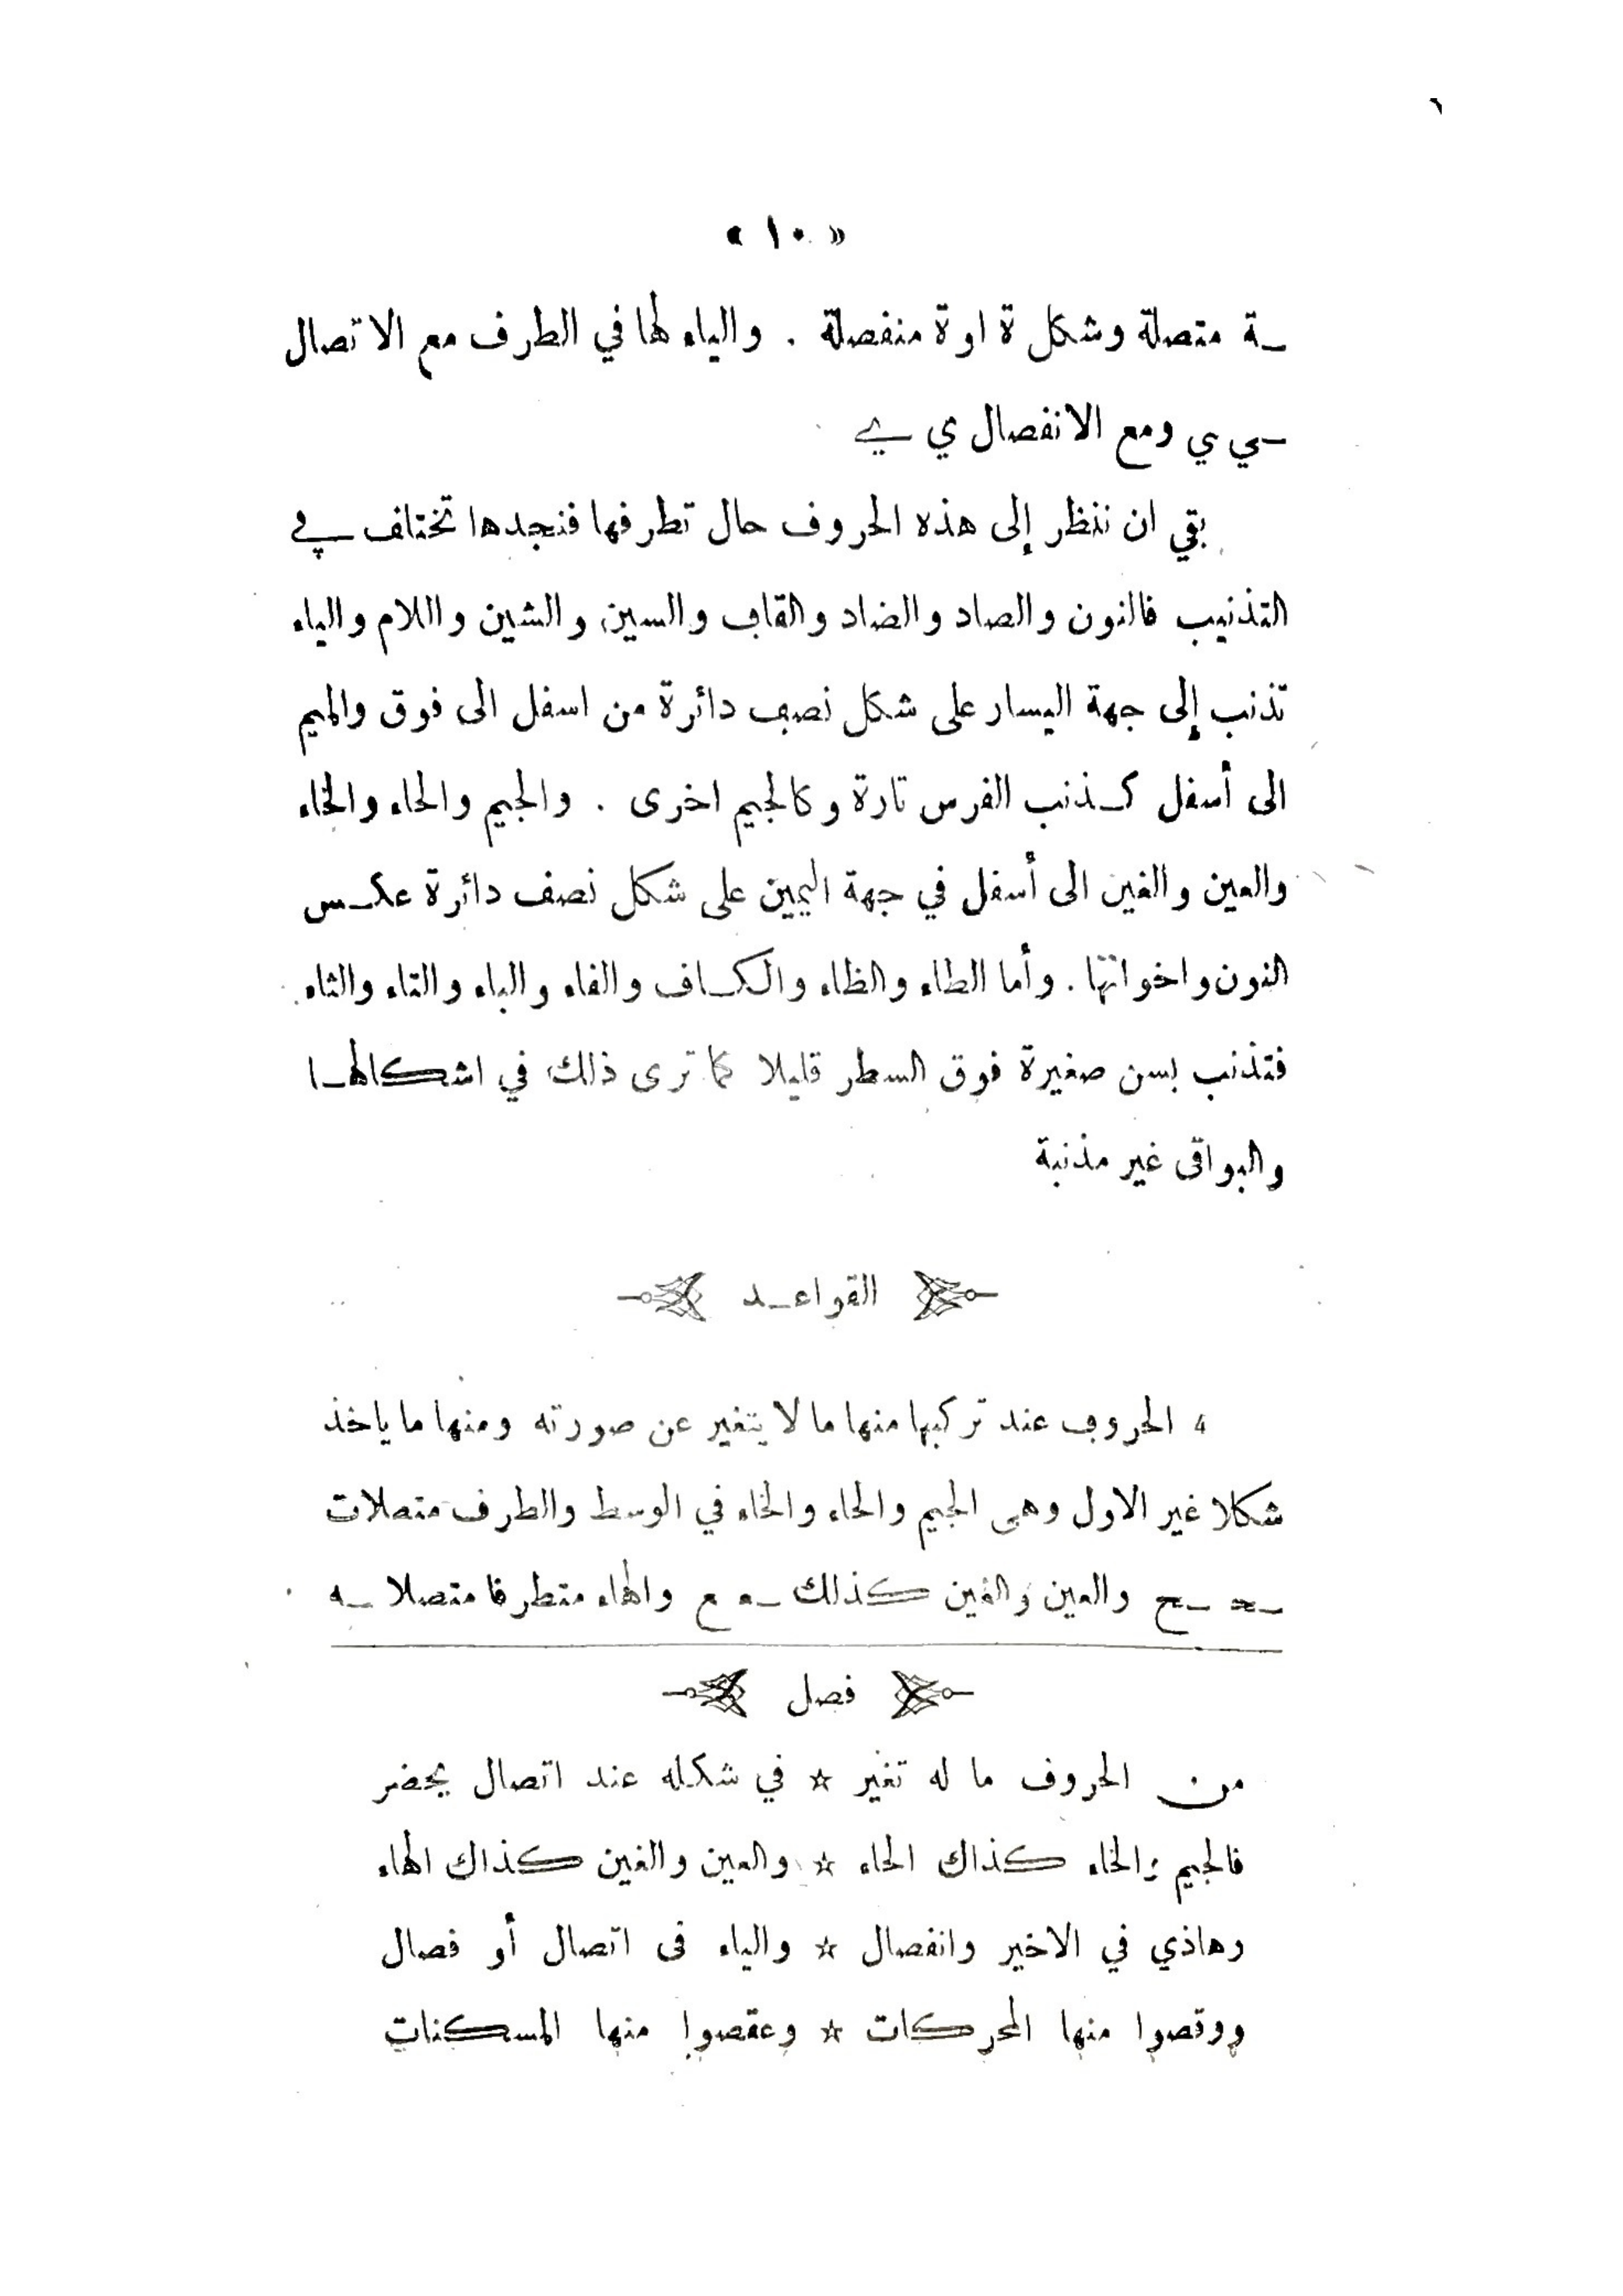 « ١٠ »
ـة متصلة وشكل ة اوة منفصلة . والياء لها في الطرف مع الاتصال
ـي ي ومع الانفصال ي ے
بقي ان ننظر إلى هذه الحروف حال تطرفها فنجدها تختلف في
التذنيب فالنون والصاد والضاد والقاف والسين والشين واللام والياء
تذنب إلى جهة اليسار على شكل نصف دائرة من اسفل الى فوق والميم
الى أسفل كـذنب الفرس تارة وكالجيم اخرى . والجيم والحاء والخاء
والعين والغين الى أسفل في جهة اليمين على شكل نصف دائرة عكـس
النون واخواتها . وأما الطاء والظاء والكـاف والفاء والباء والتاء والثاء
فتذنب بسن صغيرة فوق السطر قليلا كما ترى ذلك في اشكالهـا
والبواقى غير مذنبة
القواعـد
٤ الحروف عند تركيبها منها ما لا يتغير عن صورته ومنها ما ياخذ
شكلا غير الاول وهى الجيم والحاء والخاء في الوسط والطرف متصلات
ـحـ ـح والعين والغين كذلك ـعـ ع والهاء متطرفا متصلا ـه
فصل
من الحروف ما له تغير ☆ في شكله عند اتصال يحضر
فالجيم والخاء كذاك الحاء ☆ والعين والغين كذاك الهاء
وهاذي في الاخير وانفصال ☆ والياء فى اتصال أو فصال
ووقصوا منها المحركات ☆ وعقصوا منها المسكنات